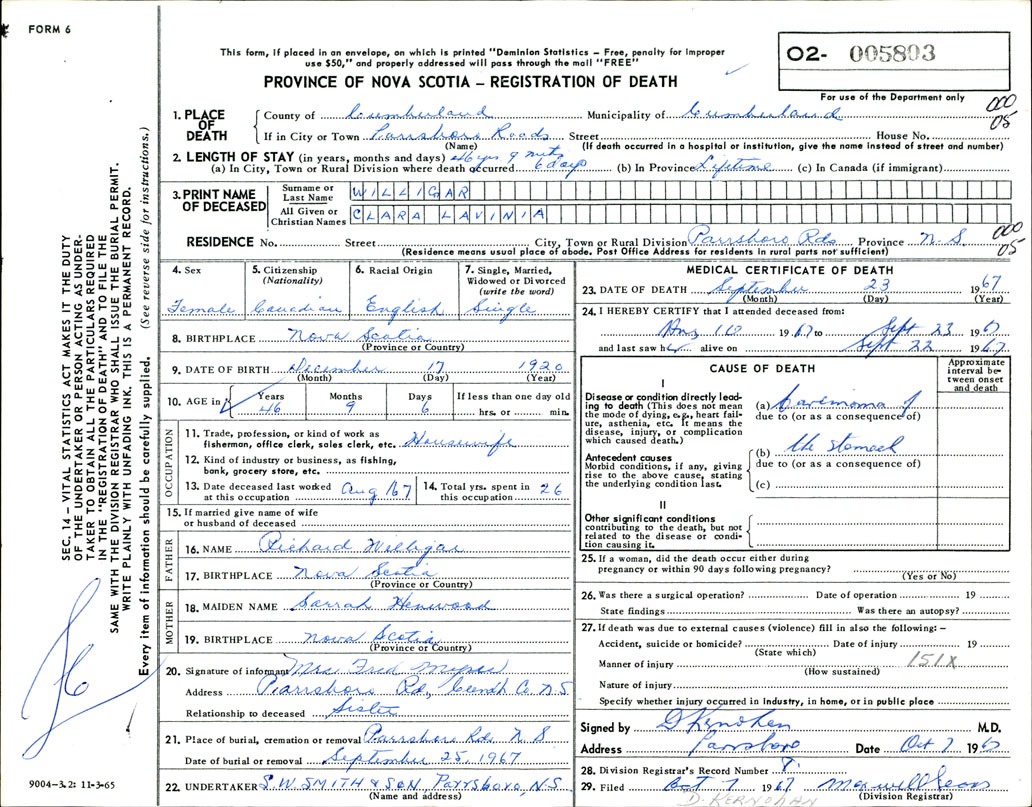 FORM 6
This form, if placed in an envelope, on which is printed "Dominion Statistics – Free, penalty for improper
use $50," and properly addressed will pass through the mail "FREE"
PROVINCE OF NOVA SCOTIA – REGISTRATION OF DEATH
O2- 005803
For use of the Department only
000
05
1. PLACE OF DEATH
County of Cumberland Municipality of Cumberland
If in City or Town Parrsboro Roads Street House No.
(Name) (If death occurred in a hospital or institution, give the name instead of street and number)
2. LENGTH OF STAY (in years, months and days) 46 yrs 9 mts
(a) In City, Town or Rural Division where death occurred 6 days (b) In Province Lifetime (c) In Canada (if immigrant)
3. PRINT NAME OF DECEASED
Surname or Last Name WILLIGAR
All Given or Christian Names CLARA LAVINIA
RESIDENCE No. Street City, Town or Rural Division Parrsboro Rds Province N.S.
000
05
(Residence means usual place of abode. Post Office Address for residents in rural parts not sufficient)
4. Sex
Female
5. Citizenship (Nationality)
Canadian
6. Racial Origin
English
7. Single, Married, Widowed or Divorced (write the word)
Single
8. BIRTHPLACE Nova Scotia
(Province or Country)
9. DATE OF BIRTH December 17 1920
(Month) (Day) (Year)
10. AGE in Years Months Days If less than one day old
46 9 6 hrs. or min.
OCCUPATION
11. Trade, profession, or kind of work as
fisherman, office clerk, sales clerk, etc. Housewife
12. Kind of industry or business, as fishing,
bank, grocery store, etc.
13. Date deceased last worked
at this occupation Aug/67
14. Total yrs. spent in
this occupation 26
15. If married give name of wife
or husband of deceased
FATHER
16. NAME Richard Willigar
17. BIRTHPLACE Nova Scotia
(Province or Country)
MOTHER
18. MAIDEN NAME Sarrah Henwood
19. BIRTHPLACE Nova Scotia
(Province or Country)
20. Signature of informant Mrs. Fred
Address Parrsboro Rd, Cumb Co. N.S.
Relationship to deceased Sister
21. Place of burial, cremation or removal Parrsboro Rds N S
Date of burial or removal September 25, 1967
22. UNDERTAKER S.W. SMITH & SON, Parrsboro, N.S.
(Name and address)
MEDICAL CERTIFICATE OF DEATH
23. DATE OF DEATH September 23 1967
(Month) (Day) (Year)
24. I HEREBY CERTIFY that I attended deceased from:
1967 to Sept 23 1967
and last saw h alive on Sept 22 1967
CAUSE OF DEATH
Approximate interval between onset and death
I
Disease or condition directly lead-
ing to death (This does not mean
the mode of dying, e.g., heart fail-
ure, asthenia, etc. It means the
disease, injury, or complication
which caused death.)
(a) Carcinoma of
due to (or as a consequence of)
Antecedent causes
Morbid conditions, if any, giving
rise to the above cause, stating
the underlying condition last.
(b) the stomach
due to (or as a consequence of)
(c)
II
Other significant conditions
contributing to the death, but not
related to the disease or condi-
tion causing it.
25. If a woman, did the death occur either during
pregnancy or within 90 days following pregnancy?
(Yes or No)
26. Was there a surgical operation? Date of operation 19
State findings Was there an autopsy?
27. If death was due to external causes (violence) fill in also the following: –
Accident, suicide or homicide? Date of injury 19
(State which)
Manner of injury 151X
(How sustained)
Nature of injury
Specify whether injury occurred in industry, in home, or in public place
Signed by D Kernohan M.D.
Address Parrsboro Date Oct 7 1967
28. Division Registrar's Record Number
29. Filed Oct 7 1967
(Division Registrar)
D. KERNOHAN
SEC. 14 – VITAL STATISTICS ACT MAKES IT THE DUTY
OF THE UNDERTAKER OR PERSON ACTING AS UNDER-
TAKER TO OBTAIN ALL THE PARTICULARS REQUIRED
IN THE "REGISTRATION OF DEATH" AND TO FILE THE
SAME WITH THE DIVISION REGISTRAR WHO SHALL ISSUE THE BURIAL PERMIT.
WRITE PLAINLY WITH UNFADING INK. THIS IS A PERMANENT RECORD.
Every item of information should be carefully supplied. (See reverse side for instructions.)
9004–3.2: 11-3-65